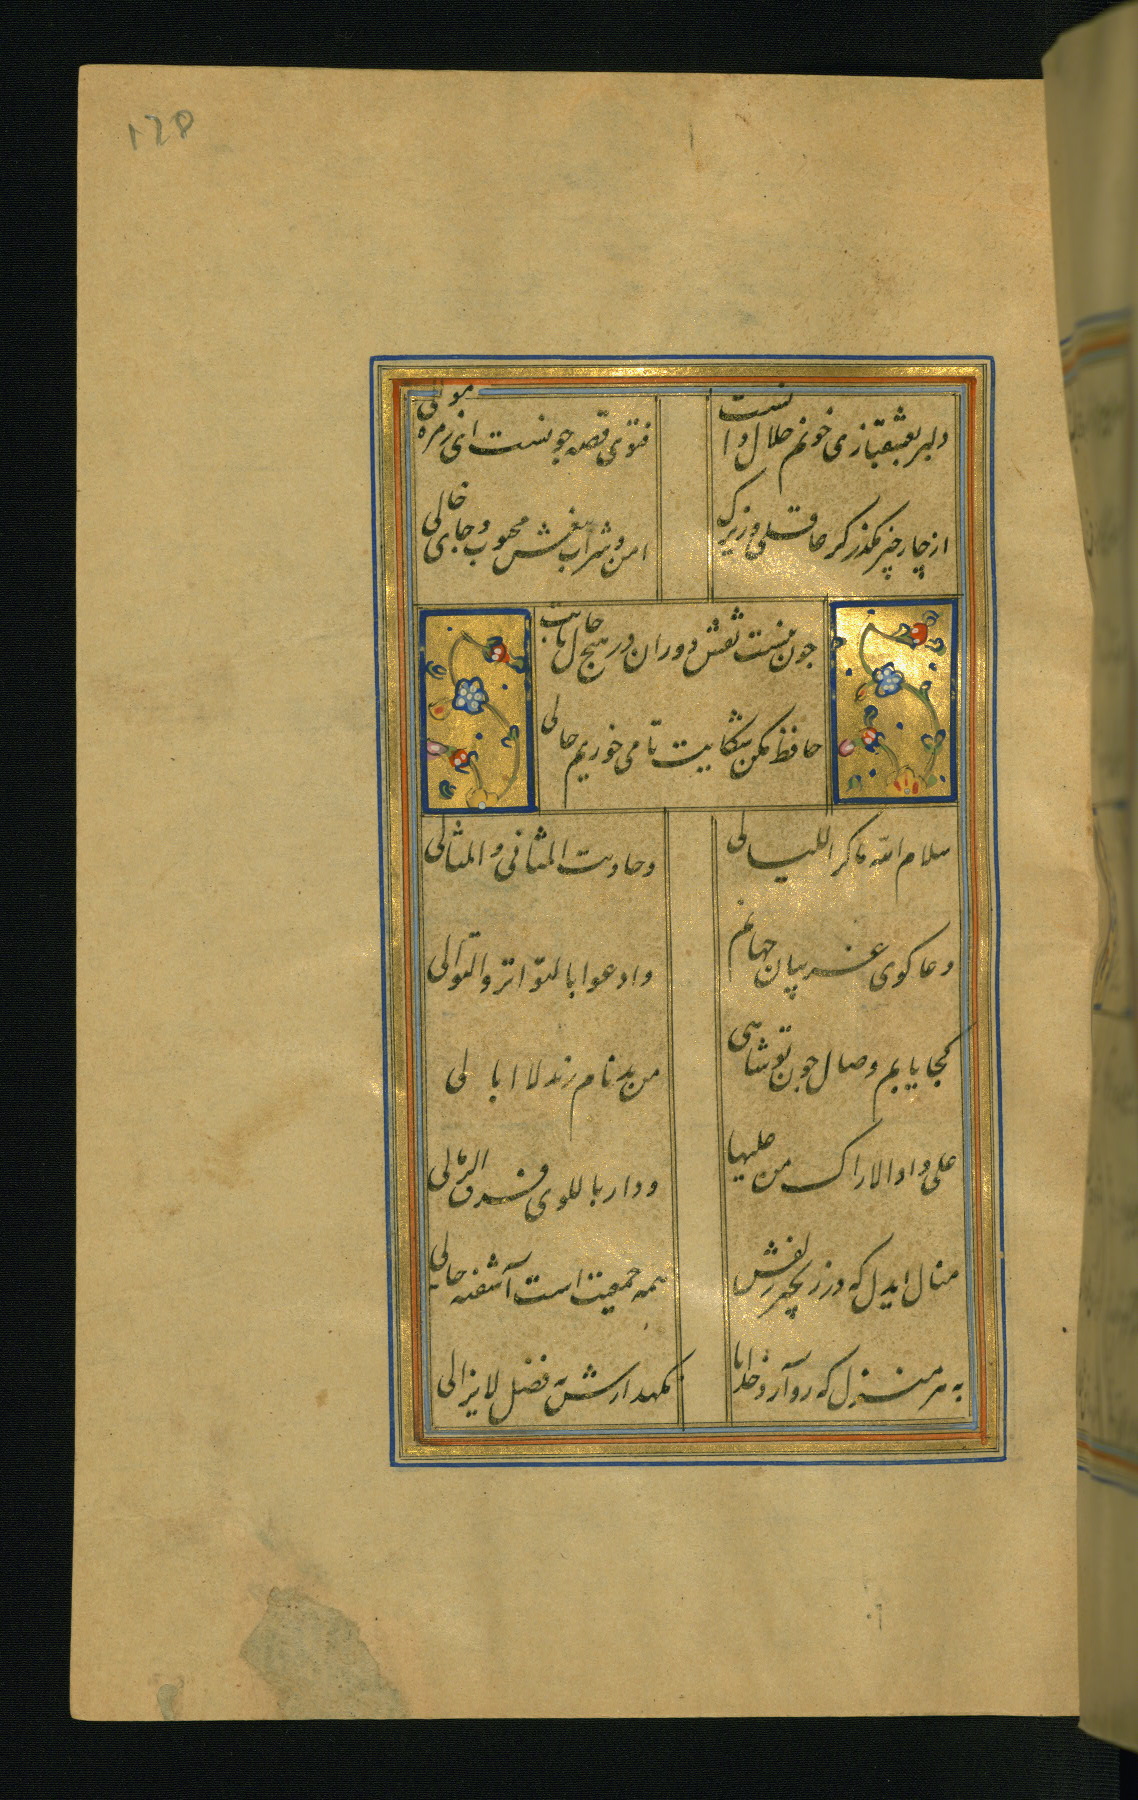 128
دلبر بعشقبازی خونم حلال دانست
فتوی قصه چونست ای زمره موالی
از چار چیز مکذر کر عاقلی و زیرک
امن و شراب بیغش محبوب و جای خالی
چون نیست نقش دوران در هیچ حال ثابت
حافظ مکن شکایت تا می خوریم حالی
سلام الله ماکر اللیالی
وجاوبت المثانی والمثالی
دعا کوی غریبان جهانم
وادعوا بالتواتر والتوالی
کجا یابم وصال چون تو شاهی
من بدنام رند لاابالی
علی وادالاراک من علیها
ودار باللوی فوق الرمالی
منال ایدل که در زنجیر زلفش
همه جمعیت است آشفته حالی
به هر منزل که رو آرد خدایا
نکهدارش به فضل لایزالی